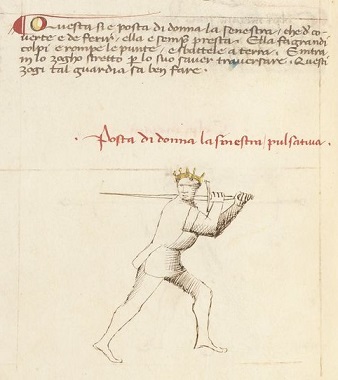 Questa si e posta di donna la senestra / che d' co-
uerte e de ferir / ella e semp' presta. Ella fa grandi
colpi e rompe le punte / e sbattele a terra. E intra
in lo zogho stretto p lo suo sauer trauersare. Questi
zogi tal guardia sa ben fare.
Posta di donna la sinestra / pulsativa.